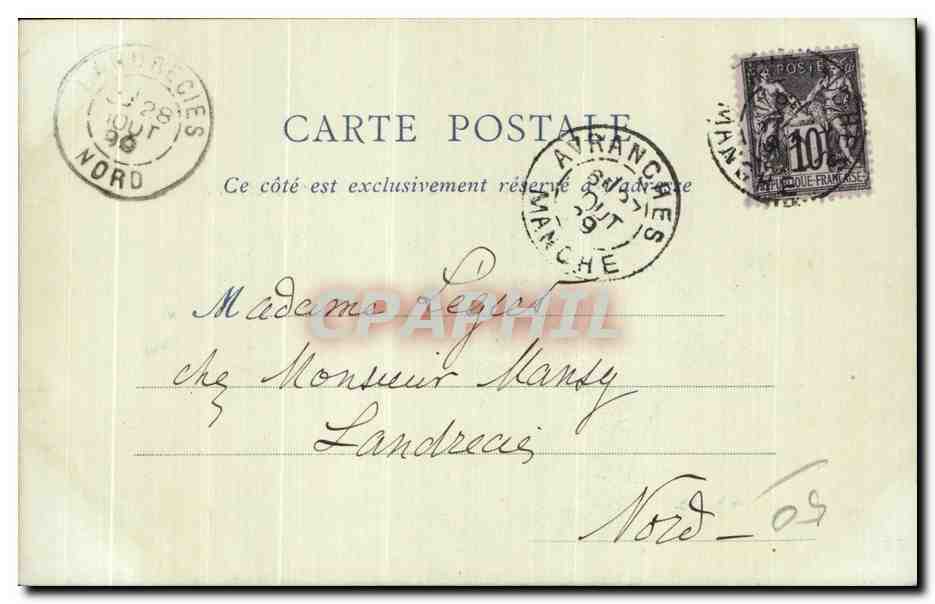 LANDRECIES
28
AOUT
NORD
POSTE
10
REPUBLIQUE FRANÇAISE
CARTE POSTALE
Ce côté est exclusivement réservé à l'adresse
AVRANCHES
27
AOUT
MANCHE
Madame
CPAPHIL
chez Monsieur Mansy
Landrecies
Nord